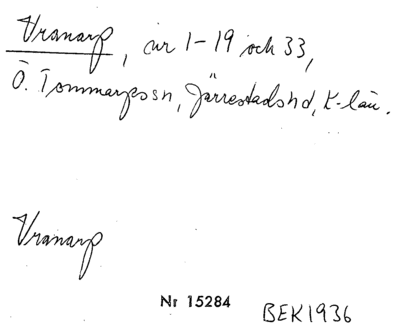 Vranarp, nr 1-19 och 33,
Ö. Tommarps sn, Järrestads hd, K-län.
Vranarp
Nr 15284 BEK1936